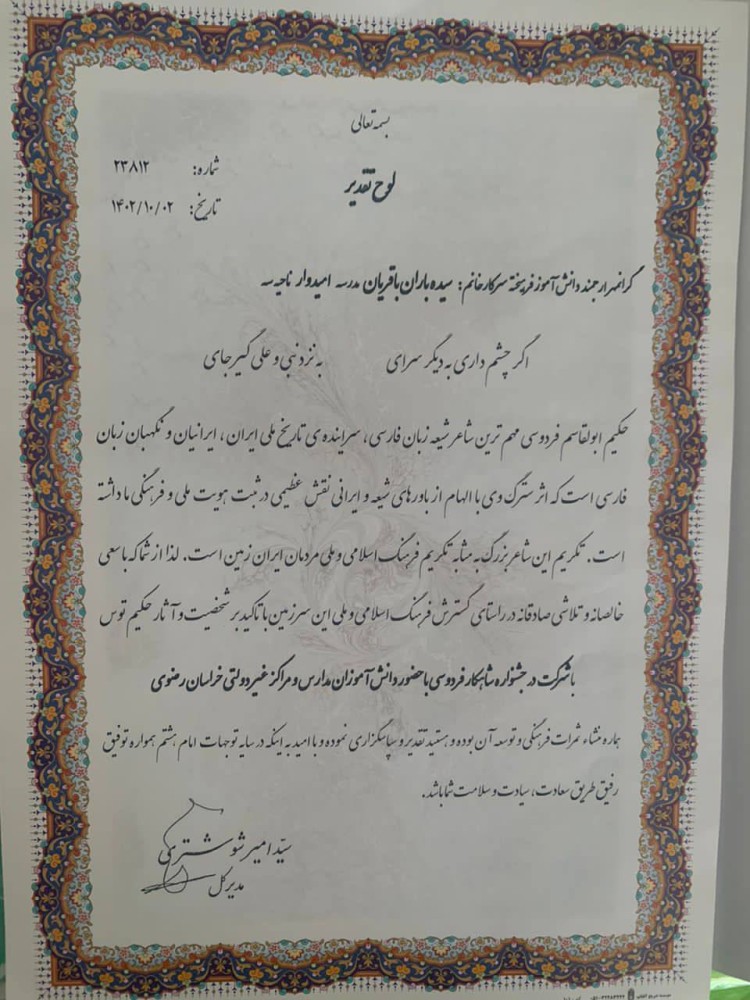 بسمه تعالی
شماره: ۲۳۸۱۲
لوح تقدیر
تاریخ: ۱۴۰۲/۱۰/۰۲
گرانمهر ارجمند دانش آموز فریخته سرکار خانم: سیده باران باقریان مدرسه امیدوار ناحیه سه
اگر چشم داری به دیگر سرای به نزد نبی و علی گیر جای
حکیم ابوالقاسم فردوسی مهم ترین شاعر شیعه زبان فارسی، سراینده ی تاریخ ملی ایران، ایرانیان و نگهبان زبان
فارسی است که اثر سترگ وی با الهام از باورهای شیعه و ایرانی نقش عظیمی در ثبت هویت ملی و فرهنگی ما داشته
است. تکریم این شاعر بزرگ به مثابه تکریم فرهنگ اسلامی و ملی مردمان ایران زمین است. لذا از شما که با سعی
خالصانه و تلاشی صادقانه در راستای گسترش فرهنگ اسلامی و ملی این سرزمین با تاکید بر شخصیت و آثار حکیم توس
با شرکت در جشنواره شاهکار فردوسی با حضور دانش آموزان مدارس و مراکز غیر دولتی خراسان رضوی
هماره منشاء ثمرات فرهنگی و توسعه آن بوده و هستید تقدیر و سپاسگزاری نموده و با امید به اینکه در سایه توجهات امام هشتم همواره توفیق
رفیق طریق سعادت، سیادت و سلامت شما باشد.
سید امیر شوشتری
مدیر کل